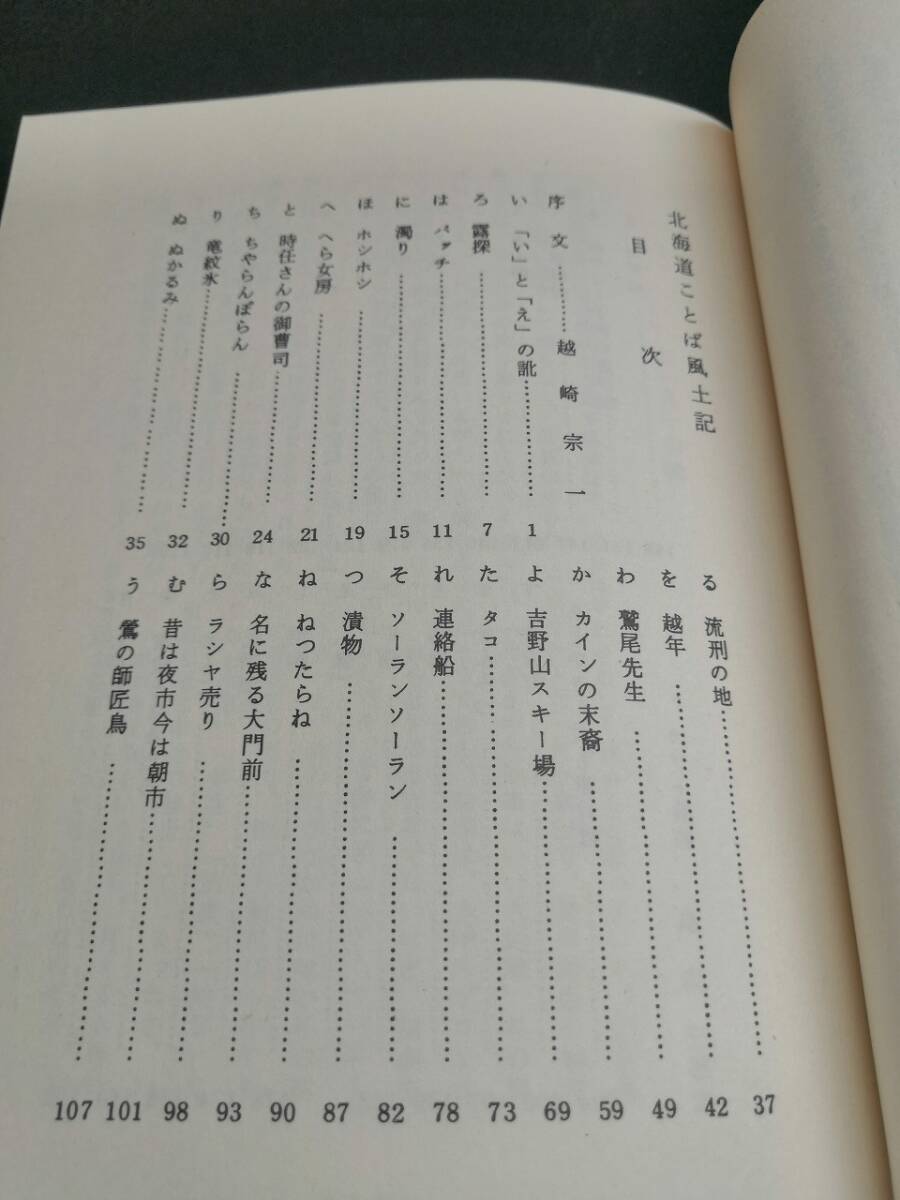 北海道ことば風土記
目次
序文…………越崎宗一
い 「い」と「え」の訛…………1
ろ 露探…………7
は パッチ…………11
に 濁り…………15
ほ ホシホシ…………19
へ へら女房…………21
と 時任さんの御曹司…………24
ち ちやらんぽらん…………30
り 竜紋氷…………32
ぬ ぬかるみ…………35
る 流刑の地…………37
を 越年…………42
わ 鷲尾先生…………49
か カインの末裔…………59
よ 吉野山スキー場…………69
た タコ…………73
れ 連絡船…………78
そ ソーランソーラン…………82
つ 漬物…………87
ね ねつたらね…………90
な 名に残る大門前…………93
ら ラシヤ売り…………98
む 昔は夜市今は朝市…………101
う 鶯の師匠鳥…………107